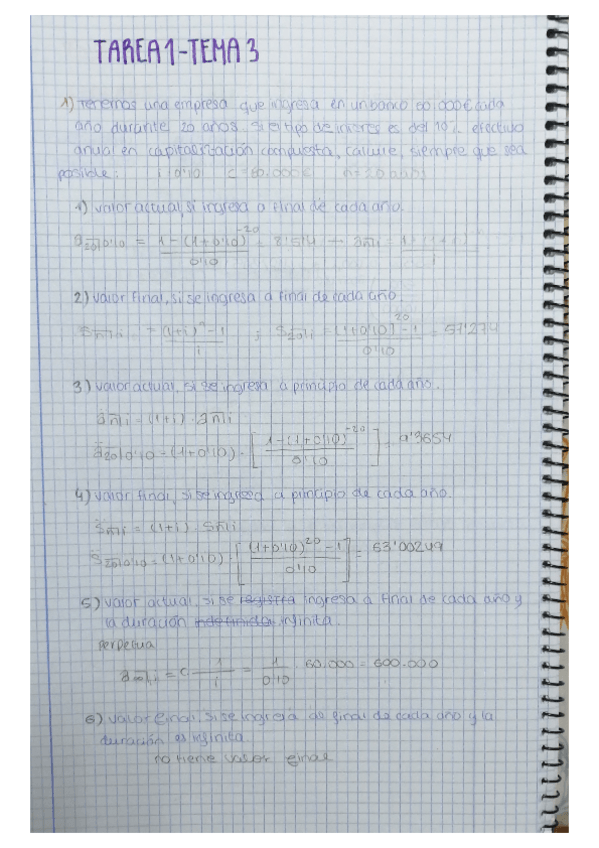 TAREA 1-TEMA 3
1) Tenemos una empresa que ingresa en un banco 60.000€ cada
año durante 20 años. Si el tipo de interés es del 10% efectivo
anual en capitalización compuesta, calcule, siempre que sea
posible: i=0'10 C=60.000€ n=20
1) valor actual, si ingresa a final de cada año.
a20|0'10 = 1-(1+0'10)^-20 / 0'10 = 8'514 → an|i =
2) valor final, si se ingresa a final de cada año.
sn|i = (1+i)^n-1 / i ; s20|i = (1+0'10)^20-1 / 0'10 = 57'274
3) valor actual, si se ingresa a principio de cada año.
än|i = (1+i) · an|i
ä20|0'10 = (1+0'10) · [1-(1+0'10)^-20 / 0'10] = 9'3654
4) valor final, si se ingresa a principio de cada año.
s̈n|i = (1+i) · sn|i
s̈20|0'10 = (1+0'10) · [(1+0'10)^20-1 / 0'10] = 63'00249
5) valor actual, si se registra ingresa a final de cada año y
la duración indefinida infinita.
Perpetua
a∞|i = C 1/i = 1/0'10 · 60.000 = 600.000
6) valor final, si se ingresa de final de cada año y la
duración es infinita.
no tiene valor final